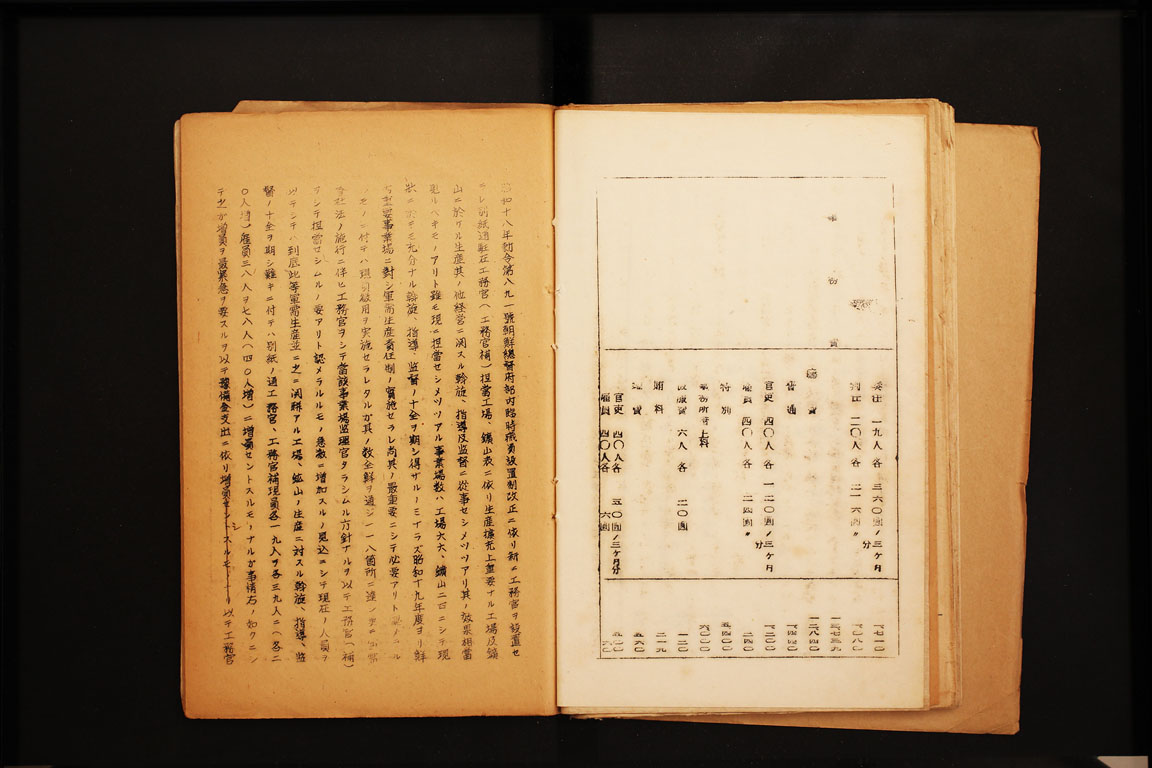 奏任 一九人各 三六〇圓ノ三ケ月分 一七一〇
判任 二〇人各 二一六圓〃 一〇八〇
事務費 一三七三九
廳費 一二八四〇
普通 一四四〇
官吏 四〇人各 一二〇圓ノ三ケ月分 一二〇〇
雇員 四〇人各 二四圓〃 二四〇
特別 五四〇〇
事務所借上料 六〇〇〇
被服費 六人各 二〇圓 一二〇
賄料 二一九
旅費 五六〇
官吏 四〇人各 五〇圓ノ三ケ月分 五〇〇
雇員 四〇人各 六圓 六〇
昭和十八年勅令第八九一號朝鮮總督府部內臨時職員設置制改正ニ依リ新ニ工務官ヲ設置セ
ラレ別紙通駐在工務官(工務官補)擔當工場、鑛山表ニ依リ生產擴充上重要ナル工場及鑛
山ニ於ケル生產其ノ他經營ニ関スル斡旋、指導及監督ニ從事セシメツツアリ其ノ效果相當
見ルベキモノアリト雖モ現ニ担當セシメツツアル事業場數ハ工場六六、鑛山二四ニシテ現
狀ニ於テモ充分ナル斡旋、指導、監督ノ十全ヲ期シ得ザルノミナラズ昭和十九年度ヨリ鮮
內重要事業場ニ對シ軍需生產責任制ノ實施セラレ尚其ノ最重要ニシテ必要アリト認メラル
ルモノニ付テハ現員徵用ヲ實施セラレタルガ其ノ數全鮮ヲ通ジ一一八箇所ニ達シ更ニ軍需
會社法ノ施行ニ伴ヒ工務官ヲシテ當該事業場監理官タラシムル方針ナルヲ以テ工務官(補)
ヲシテ担當セシムルノ要アリト認メラルルモノ急激ニ增加スルノ見込ニシテ現在ノ人員ヲ
以テシテハ到底此等軍需生產並ニ之ニ関聯アル工場、鑛山ノ生產ニ對スル斡旋、指導、監
督ノ十全ヲ期シ難キニ付テハ別紙ノ通工務官、工務官補現員各一九人ヲ各三九人ニ(各二
〇人增)雇員三八人ヲ七八人(四〇人增)ニ增員セントスルモノナルガ事情右ノ如クニシ
テ之ガ增員ヲ最緊急ヲ要スルヲ以テ豫備金支出ニ依リ增員セントスルモノナリ以テ工務官